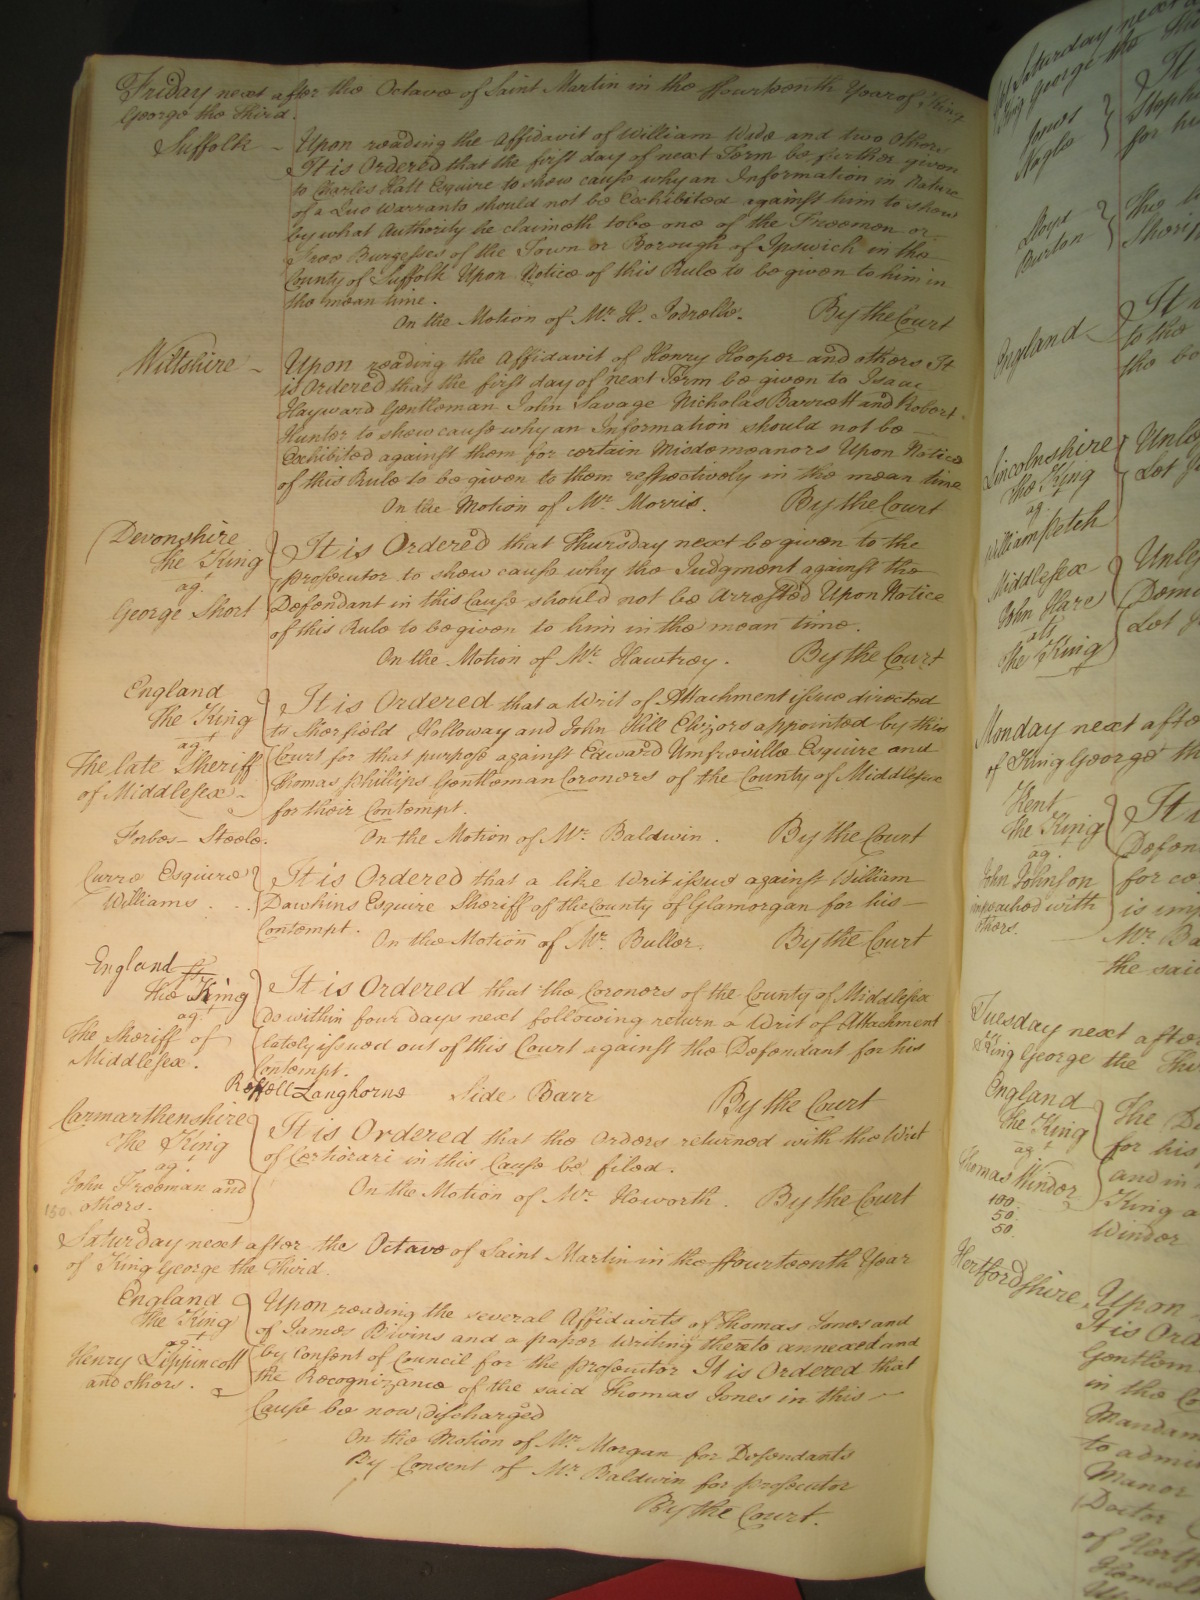 Friday next after the Octave of Saint Martin in the ffourteenth Year of King
George the Third.
Suffolk - Upon reading the Affidavit of William Wade and two Others
It is Ordered that the first day of next Term be further given
to Charles Hall Esquire to show cause why an Information in Nature
of a Quo Warranto should not be Exhibited against him to show
by what Authority he claimeth to be one of the Freemen or
Free Burgesses of the Town or Borough of Ipswich in the
County of Suffolk Upon Notice of this Rule to be given to him in
the mean time.
On the Motion of Mr. H. Jodrelle. By the Court
Wiltshire - Upon reading the Affidavit of Henry Hooper and others It
is Ordered that the first day of next Term be given to Isaac
Hayward Gentleman John Savage Nicholas Barrett and Robert
Hunter to show cause why an Information should not be
Exhibited against them for certain Misdemeanors Upon Notice
of this Rule to be given to them respectively in the mean time
On the Motion of Mr. Morris. By the Court
Devonshire
The King
agt.
George Short
It is Ordered that Thursday next be given to the
prosecutor to show cause why the Judgment against the
Defendant in this Cause should not be Arrested Upon Notice
of this Rule to be given to him in the mean time.
On the Motion of Mr. Hawtrey. By the Court
England
The King
agt.
The late Sheriff
of Middlesex
It is Ordered that a Writ of Attachment issue directed
to Sherfield Holloway and John Hill Elizors appointed by this
Court for that purpose against Edward Umfreville Esquire and
Thomas Phillips Gentleman Coroners of the County of Middlesex
for their Contempt.
Forbes - Steele. On the Motion of Mr. Baldwin. By the Court
Curre Esquire
Williams
It is Ordered that a like Writ issue against William
Dawkins Esquire Sheriff of the County of Glamorgan for his
Contempt.
On the Motion of Mr. Buller. By the Court
England
The King
agt.
The Sheriff of
Middlesex.
It is Ordered that the Coroners of the County of Middlesex
do within four days next following return a Writ of Attachment
lately issued out of this Court against the Defendant for his
Contempt.
Langhorne Side Barr By the Court
Carmarthenshire
The King
agt.
John Freeman and
others.
150
It is Ordered that the Orders returned with the Writ
of Certiorari in this Cause be filed.
On the Motion of Mr. Howorth. By the Court
Saturday next after the Octave of Saint Martin in the ffourteenth Year
of King George the Third.
England
The King
agt.
Henry Lippincott
and others.
Upon reading the several Affidavits of Thomas Jones and
of James Bivins and a paper Writing thereto annexed and
by Consent of Council for the prosecutor It is Ordered that
the Recognizance of the said Thomas Jones in this
Cause be now discharged
On the Motion of Mr. Morgan for Defendants
By Consent of Mr. Baldwin for prosecutor
By the Court.
Jones
Naglo
Lloyd
Burdon
England
It
to the
the bo
Lincolnshire
The King
agt.
William Petch
Middlesex
John Hare
ats
The King
Monday next after
of King George th
Kent
The King
agt.
John Johnson
impeached with
others.
It
Defen
for co
is im
Mr. Ba
the said
Tuesday next after
King George the Thi
England
The King
agt.
Thomas Windor
100
50.
50.
The D
for his
and in
King a
Windor
Hertfordshire Upon
It is Ord
Gentlem
in the Co
Mandam
to admi
Manor
Doctor
of Hertf